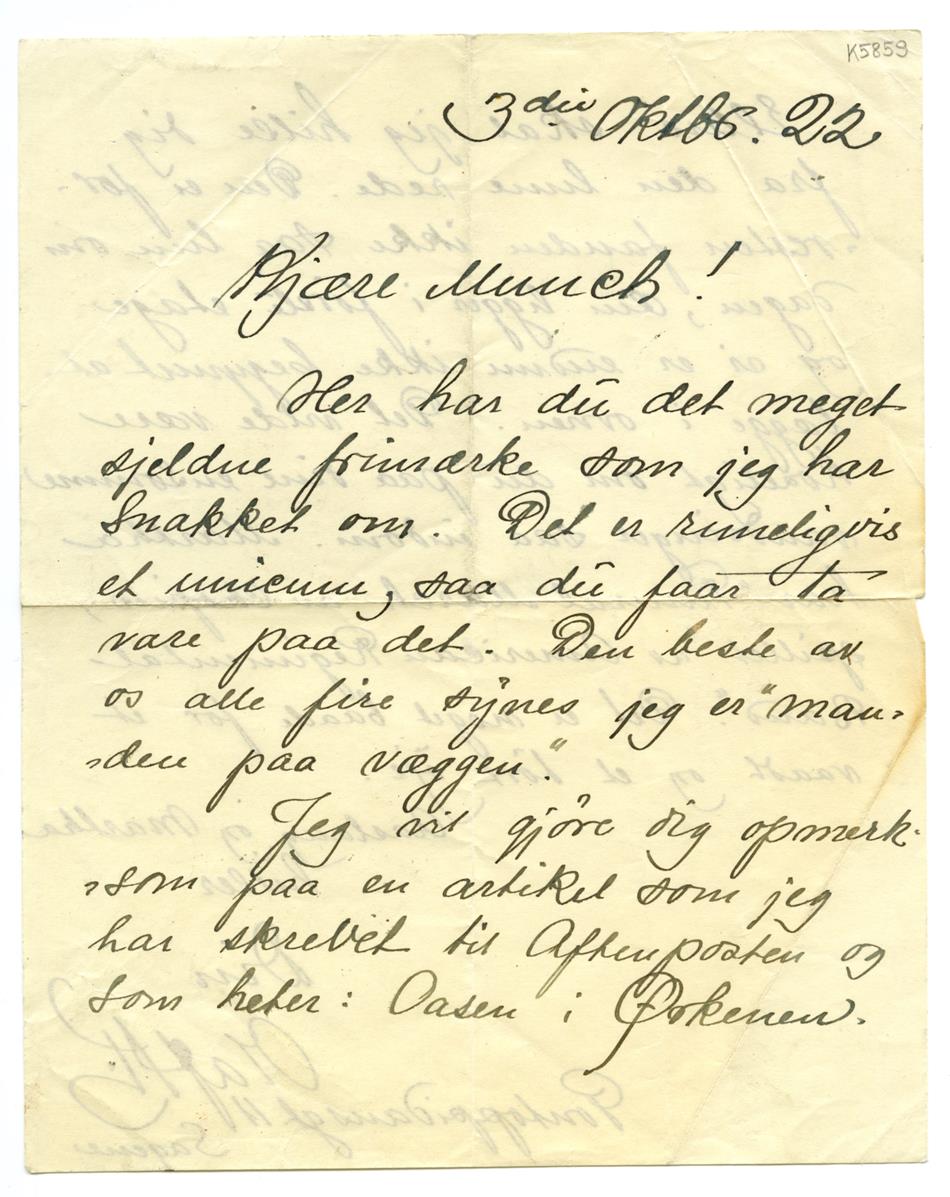 K5859
3die Oktbr. 22
Kjære Munch!
Her har du det meget
sjeldne frimærke som jeg har
Snakket om. Det er rimeligvis
et unicum, saa du faar ta
vare paa det. Den beste av
os alle fire synes jeg er "man-
-den paa væggen."
Jeg vil gjöre dig opmerk-
-som paa en artikel som jeg
har skrevet til Aftenposten og
som heter: Oasen i Ørkenen.